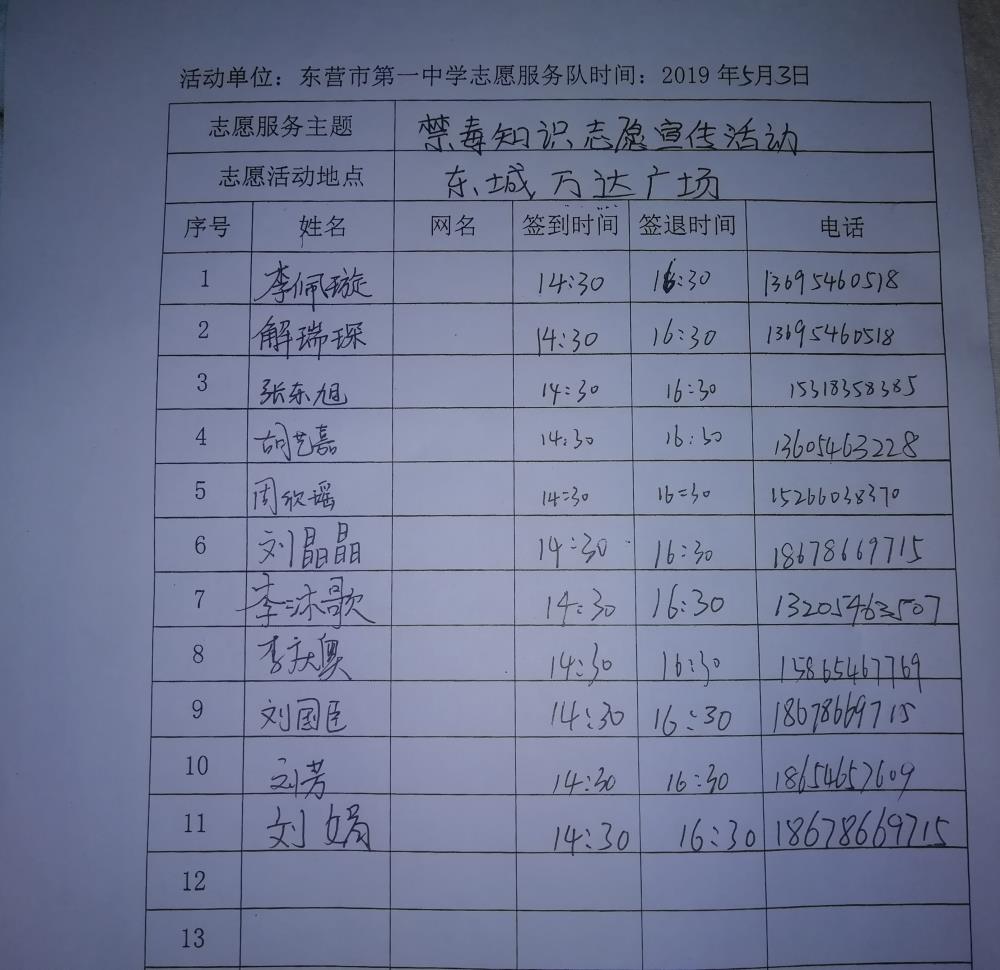 活动单位：东营市第一中学志愿服务队时间：2019年5月3日
志愿服务主题 禁毒知识志愿宣传活动
志愿活动地点 东城万达广场
序号 姓名 网名 签到时间 签退时间 电话
1 李佩璇 14:30 16:30 13695460518
2 解瑞琛 14:30 16:30 13695460518
3 张东旭 14:30 16:30 15318358385
4 胡艺嘉 14:30 16:30 13605463228
5 周欣谣 14:30 16:30 15266038370
6 刘晶晶 14:30 16:30 18678669715
7 李沐歌 14:30 16:30 13205463507
8 李庆奥 14:30 16:30 15865467769
9 刘国臣 14:30 16:30 18678669715
10 刘芳 14:30 16:30 18654657609
11 刘娟 14:30 16:30 18678669715
12
13